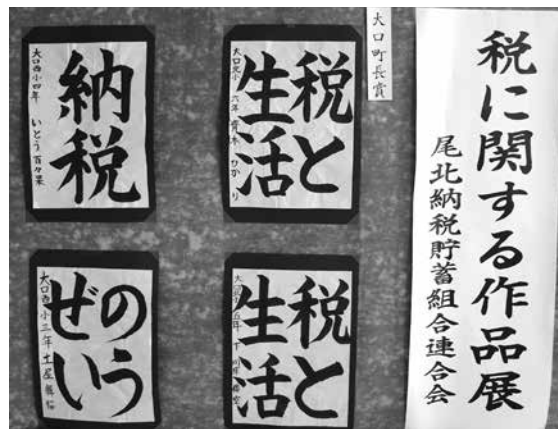 税に関する作品展
尾北納税貯蓄組合連合会
大口町長賞
税と
生活
大口北小 六年 青木 ひかり
納税
大口西小四年 いとう 百々果
税と
生活
のう
ぜい
大口西小三年 土屋